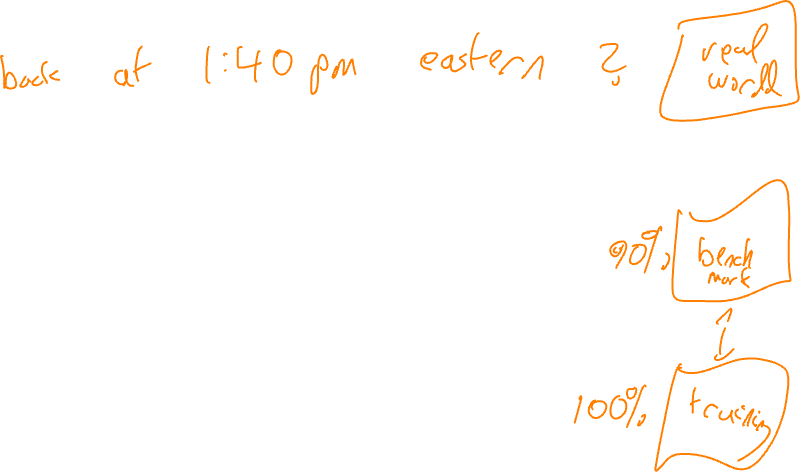 back at 1:40 pm eastern ? real
world
90% bench
mark
100% training